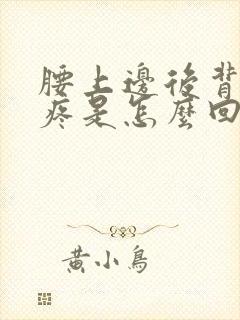 腰上邊後背
疼是怎麼回
黃小鳥